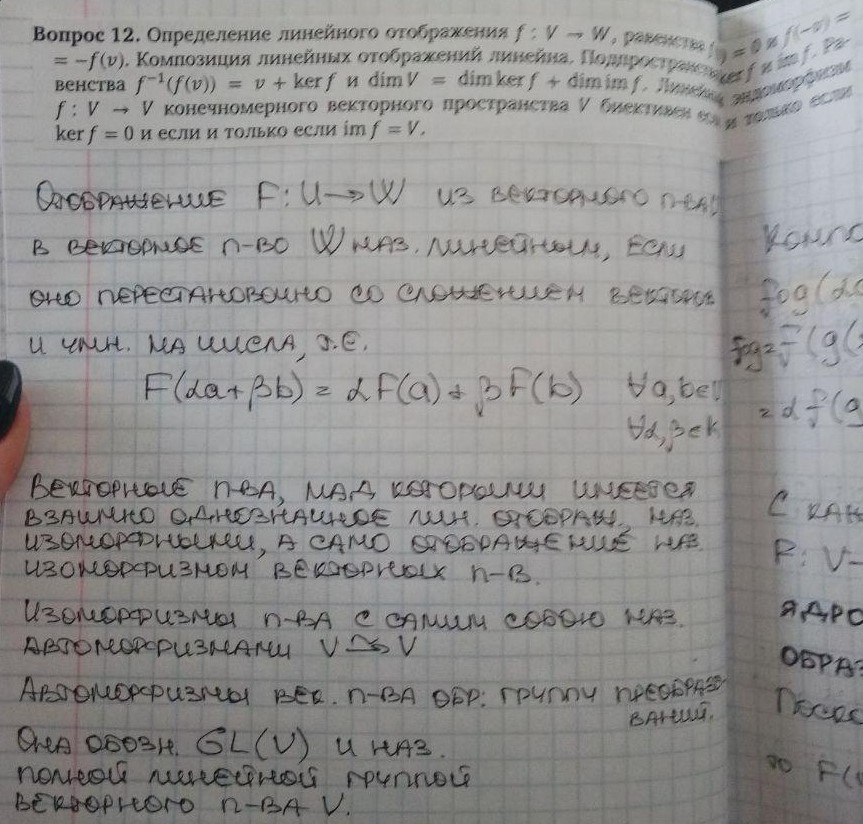 Вопрос 12. Определение линейного отображения f : V → W, равенства f(0) = 0 и f(−v) =
= −f(v). Композиция линейных отображений линейна. Подпространства ker f и im f. Ра-
венства f⁻¹(f(v)) = v + ker f и dim V = dim ker f + dim im f. Линейный эндоморфизм
f : V → V конечномерного векторного пространства V биективен если и только если
ker f = 0 и если и только если im f = V.
Отображение F: U → W из векторного
в векторное п-во W наз. линейным, если
оно перестановочно со сложением векторов
и умн. на числа, т.е.
F(αa+βb) = αF(a) + βF(b) ∀a,b∈U
∀α,β∈K
Векторные п-ва, над которыми имеется
взаимно однозначное лин. отображ., наз.
изоморфными, а само отображение наз.
изоморфизмом векторных п-в.
Изоморфизмы п-ва с самим собою наз.
автоморфизмами V ⥲ V
Автоморфизмы век. п-ва обр. группу преобразо-
ваний.
Она обозн. GL(V) и наз.
полной линейной группой
векторного п-ва V.
Компо
fog(α
fog = f(g(
= αf(g
С кан
F: V-
ядро
образ
то F(